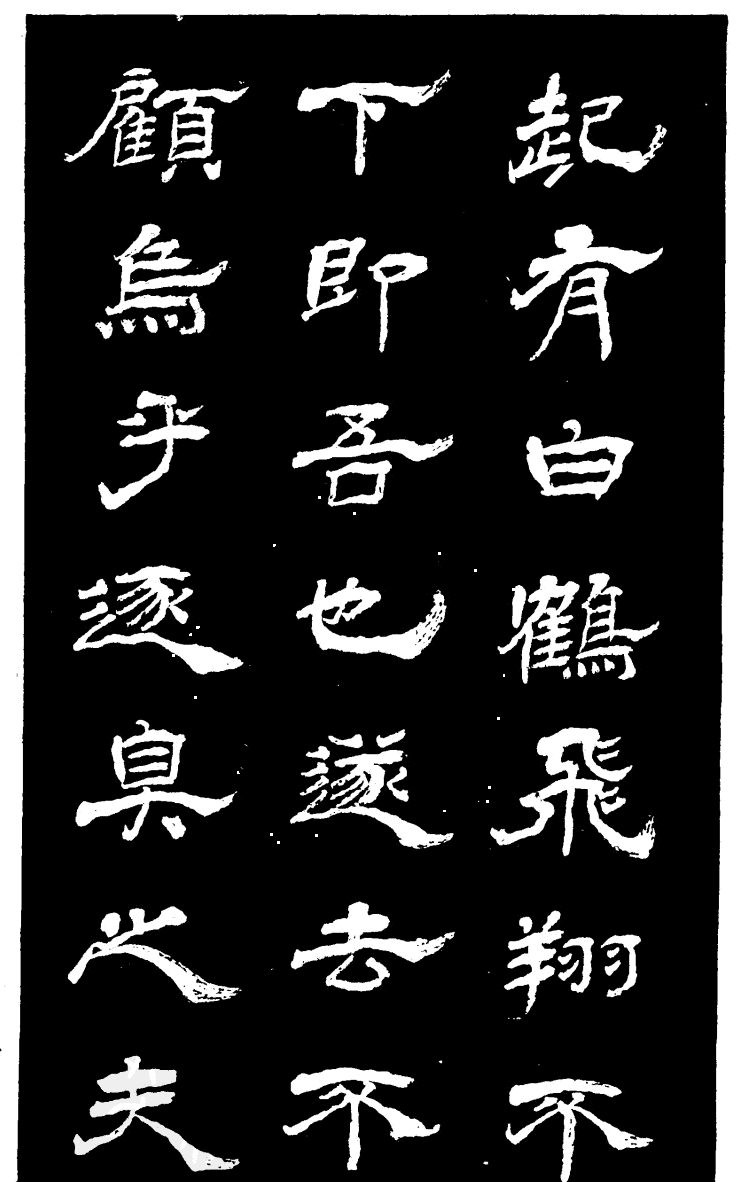 起有白鶴飛翔不
下即吾也遂去不
顧烏乎逐臭之夫